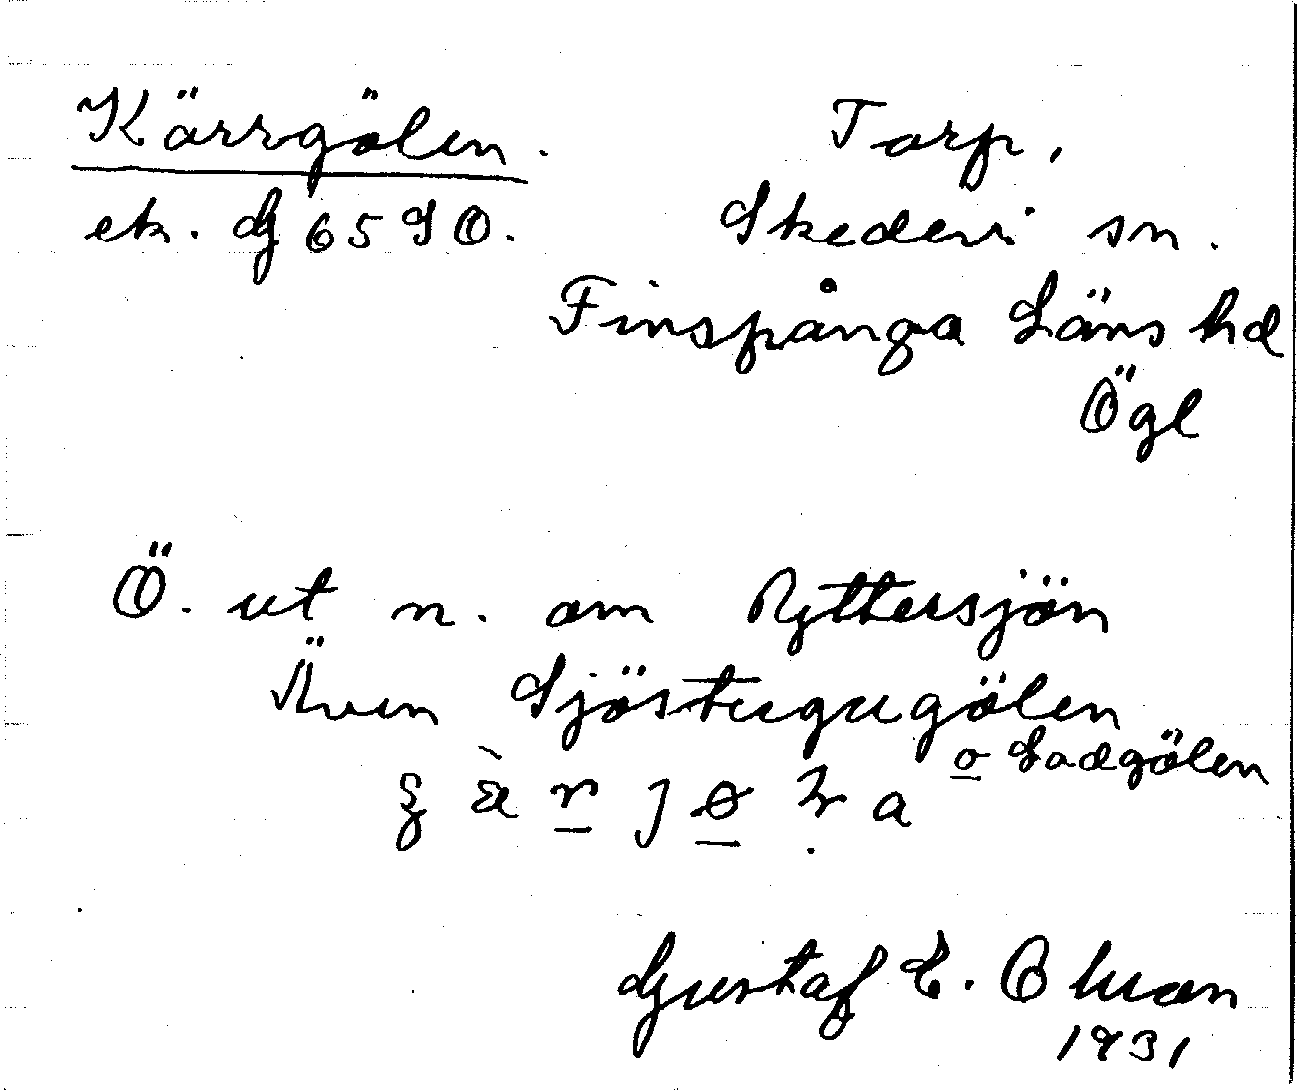 Kärrgölen. Torp,
ek. G 65 S O. Skedevi sn.
Finspånga Läns hd
Ögl
Ö. ut n. om Ryttersjön
Även Sjöstugugölen
o Ladgölen
Gustaf E. Ohman
1931